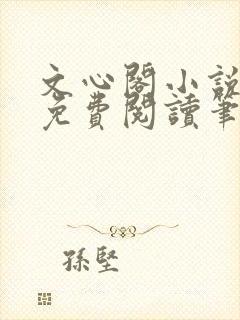 文心閣小說
免費閱讀筆
孫堅